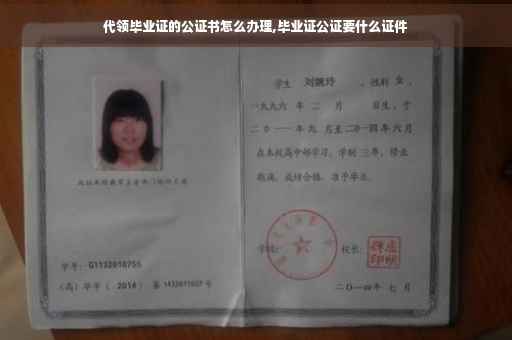 代领毕业证的公证书怎么办理,毕业证公证要什么证件
学号：G1132010755
(高)毕字（2014）第1432011027号
学生 刘婉玲 ，性别 女，
一九九六 年 二 月 日生，于
二0一一 年九 月至二0一四年 六月
在本校高中部学习，学制 三年，修业
期满，成绩合格，准予毕业。
学校：
校长：
二〇一四年 七 月